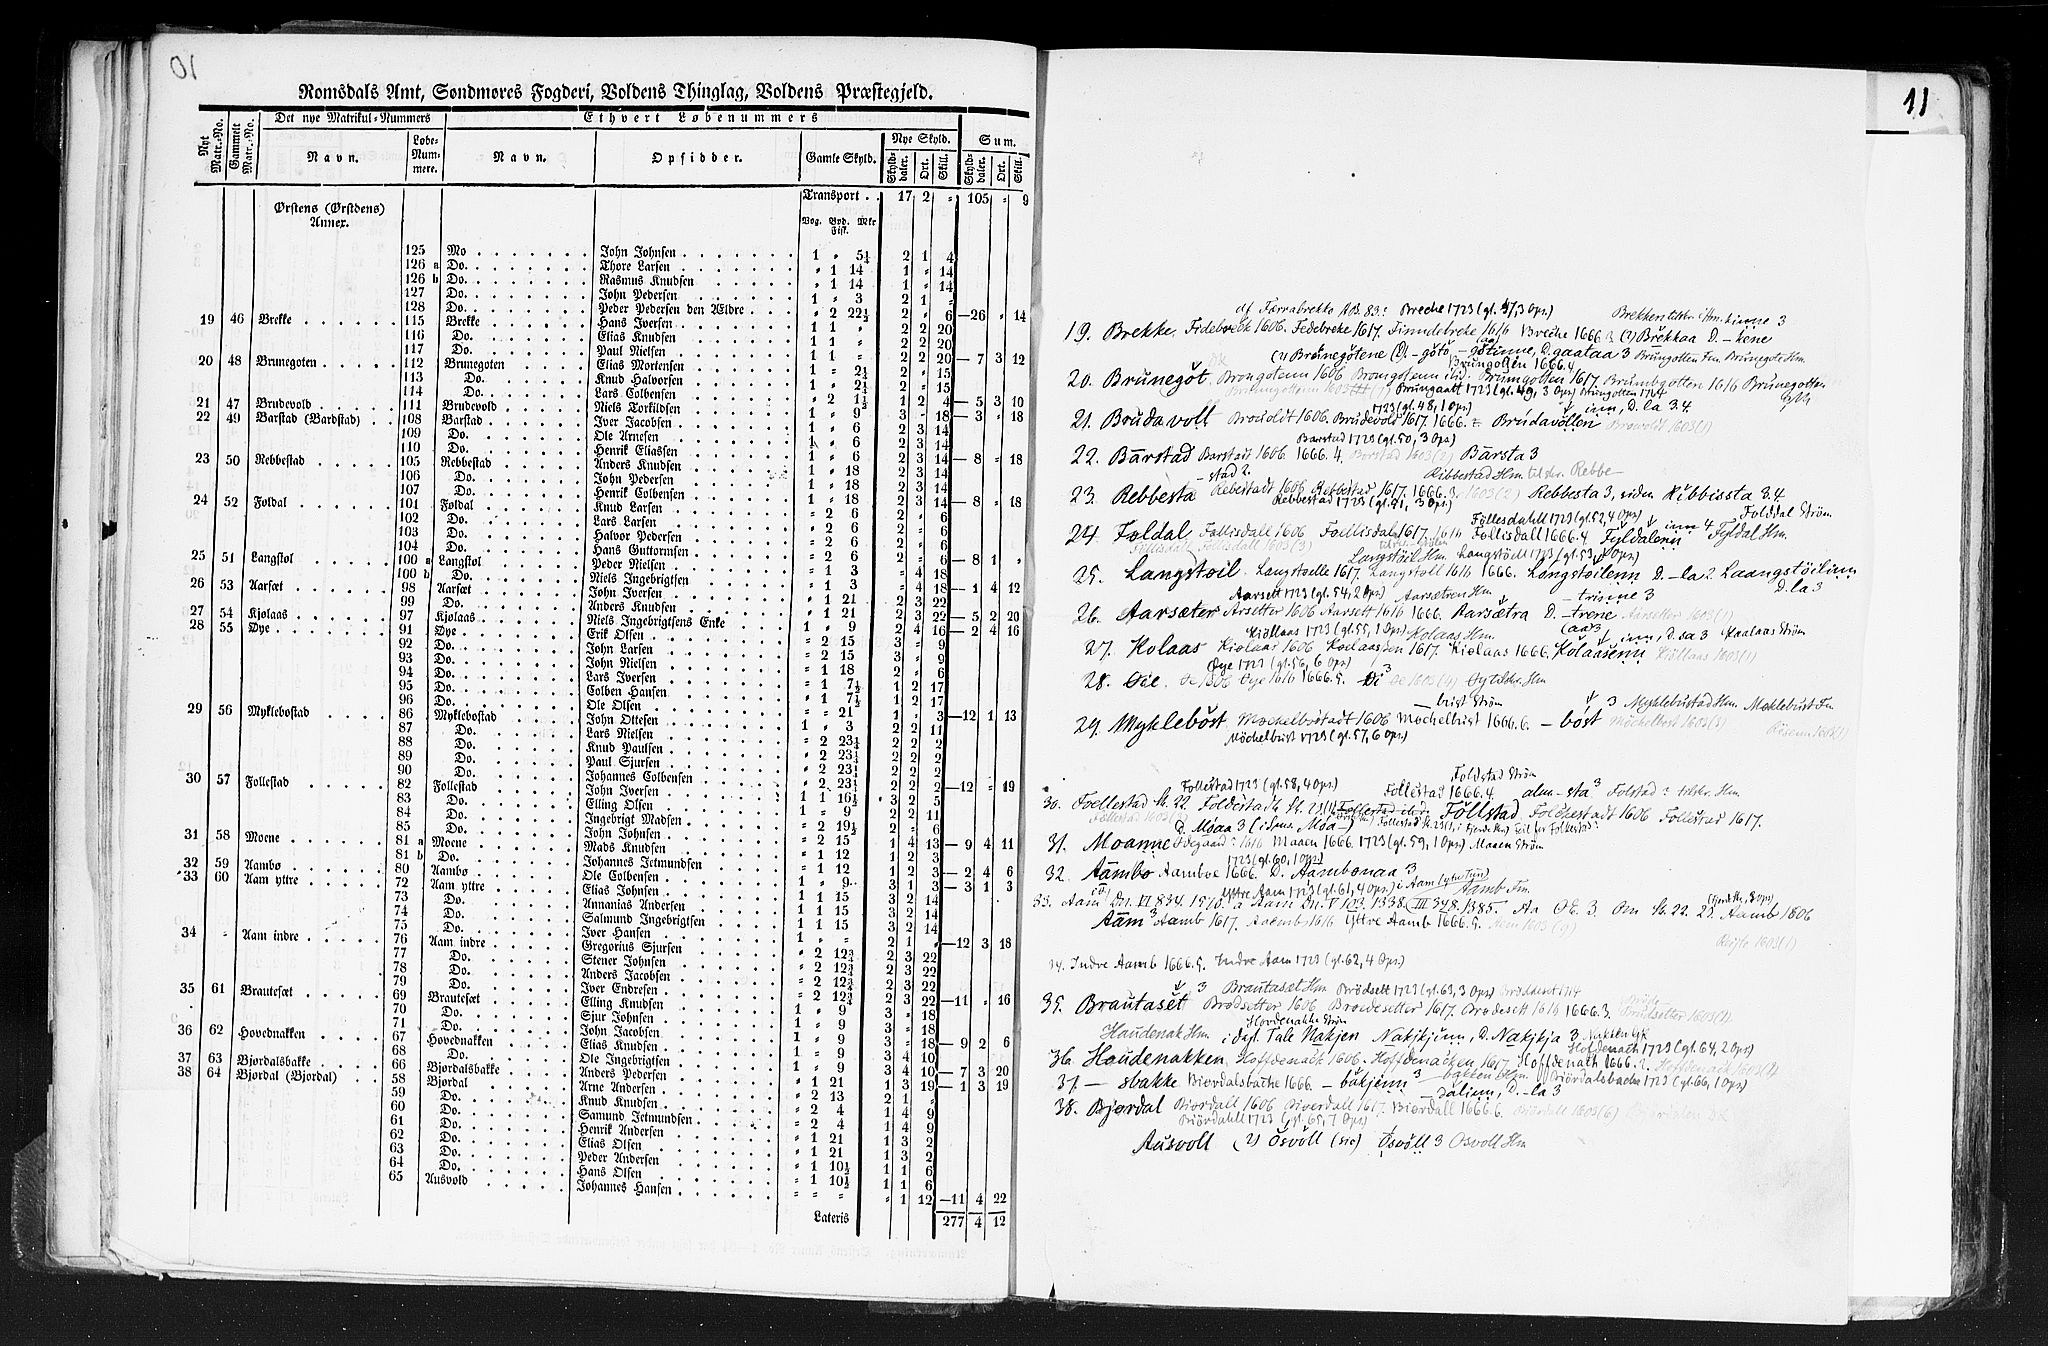 10
Romsdals Amt, Søndmøres Fogderi, Voldens Thinglag, Voldens Præstegjeld.
Nyt Matr.-No. Gammelt Matr.-No. Det nye Matrikul-Nummers Ethvert Løbenummers
Navn. Løbe-Nummere. Navn. Opsidder. Gamle Skyld. Nye Skyld. Sum.
Skylddaler. Ort. Skill. Skylddaler. Ort. Skill.
Transport . . 17 2 " 105 " 9
Ørstens (Ørstdens) Annex. Vog. Bpd. Mkr Fisk.
125 Mo John Johnsen 1 " 5¼ 2 1 4
126 a Do. Thore Larsen " 1 14 1 " 14
126 b Do. Rasmus Knudsen " 1 14 1 " 14
127 Do. John Pedersen 1 " 3 2 1 "
128 Do. Peder Pedersen den Ældre " 2 22½ 2 " 6 —26 " 14
19 46 Brekke 115 Brekke Hans Iversen 1 1 " 2 2 20
116 Do. Elias Knudsen 1 1 " 2 2 20
117 Do. Paul Nielsen 1 1 " 2 2 20 — 7 3 12
20 48 Brunegoten 112 Brunegoten Elias Mortensen 1 " 2¼ 2 " 15
113 Do. Knud Halvorsen 1 " 2¼ 2 " 15
114 Do. Lars Colbensen " 2 1½ 1 2 4 — 5 3 10
21 47 Brudevold 111 Brudevold Niels Torkildsen 1 " 9 3 " 18 — 3 " 18
22 49 Barstad (Bardstad) 108 Barstad Iver Jacobsen 1 " 6 2 3 14
109 Do. Ole Arnesen 1 " 6 2 3 14
110 Do. Henrik Eliassen 1 " 6 2 3 14 — 8 " 18
23 50 Rebbestad 105 Rebbestad Anders Knudsen 1 " 18 2 3 14
106 Do. John Pedersen 1 " 18 2 3 14
107 Do. Henrik Colbensen 1 " 18 2 3 14 — 8 " 18
24 52 Foldal 101 Foldal Knud Larsen " 2 6 2 " 6
102 Do. Lars Larsen " 2 6 2 " 6
103 Do. Halvor Pedersen " 2 6 2 " 6
104 Do. Hans Guttormsen " 2 6 2 " 6 — 8 1 "
25 51 Langstol 100 a Langstol Peder Nielsen " 1 3 " 4 18
100 b Do. Niels Ingebrigtsen " 1 3 " 4 18 — 1 4 12
26 53 Aarsæt 98 Aarsæt John Iversen " 1 21 2 3 22
99 Do. Anders Knudsen " 1 21 2 3 22 — 5 2 20
27 54 Kjølaas 97 Kjølaas Niels Ingebrigtsens Enke 1 " 9 2 4 16 — 2 4 16
28 55 Øye 91 Øye Erik Olsen " 2 15 3 " 9
92 Do. John Larsen " 2 15 3 " 9
93 Do. John Nielsen " 1 18 2 " 6
94 Do. Lars Iversen " 1 7½ 1 2 17
95 Do. Colben Hansen " 1 7½ 1 2 17
96 Do. Ole Olsen " " 21 1 " 3 —12 1 13
29 56 Myklebostad 86 Myklebostad John Ottesen 1 " 3 2 2 11
87 Do. Lars Nielsen " 2 23¼ 2 2 2
88 Do. Knud Paulsen " 2 23¼ 2 2 2
89 Do. Paul Sjursen " 2 23¼ 2 2 2
90 Do. Johannes Colbensen " 2 23¼ 2 2 2 —12 " 19
30 57 Follestad 82 Follestad John Iversen 1 1 16½ 3 2 5
83 Do. Elling Olsen 1 " 9 2 2 11
84 Do. Ingebrigt Madsen " 2 19½ 2 " 6
85 Do. John Johnsen " 2 15 1 4 13 — 9 4 11
31 58 Moene 81 a Moene Mads Knudsen " 1 12 1 2 3
81 b Do. Johannes Jetmundsen " 1 12 1 2 3 — 2 4 6
32 59 Aambø 80 Aambø Ole Colbensen 1 " 9 3 1 3 — 3 1 3
33 60 Aam yttre 72 Aam yttre Elias Johnsen 1 1 15 3 2 14
73 Do. Annanias Andersen 1 1 15 3 2 14
74 Do. Salmund Ingebrigtsen 1 1 15 3 2 14
75 Do. Iver Hansen 1 " " 2 1 " —12 3 18
34 " Aam indre 76 Aam indre Gregorius Sjursen " 2 12¾ 2 3 22
77 Do. Stener Johnsen " 2 12¾ 2 3 22
78 Do. Anders Jacobsen " 2 12¾ 2 3 22
79 Do. Iver Endresen " 2 12¾ 2 3 22 —11 " 16
35 61 Brautesæt 69 Brautesæt Elling Knudsen 1 " 9 3 " 18
70 Do. Sjur Johnsen 1 " 9 3 " 18
71 Do. John Jacobsen 1 " 9 3 " 18 — 9 2 6
36 62 Hovednakken 67 Hovednakken Elias Knudsen 1 " 9 3 4 10
68 Do. Ole Ingebrigtsen 1 " 9 3 4 10 — 7 3 20
37 63 Bjørdalsbakke 66 Bjørdalsbakke Anders Pedersen " 1 21 1 3 19 — 1 3 19
38 64 Bjørdal (Bjordal) 58 Bjørdal Arne Andersen " 2 13 2 1 "
59 Do. Knud Knudsen " 2 4 1 4 9
60 Do. Samund Jetmundsen " 2 4 1 4 9
61 Do. Henrik Andersen " 1 21 1 3 2
62 Do. Elias Olsen " 1 21 1 3 2
63 Do. Peder Andersen " 1 10½ 1 1 6
64 Do. Hans Olsen " 1 10½ 1 1 6
65 Ausvold Johannes Hansen " " " " 1 12 —11 4 22
Lateris 277 4 12
11
Breche 1723 (gl. 47, 3 Ops)
19. Brekke. Fidebreck 1606. Fedebreke 1617. 1616 Breche 1666.3 Brekkaa D. -kene
(2) Brunegøtene D. gaataa 3 Brungotten Fm. Brunegote Hm.
Brungotten 1666.4
20. Brunegot. Brongotenn 1606 Brungotten 1617. Brumbgotten 1616 Brunegotten
Brungaatt 1723 (gl. 49, 3 Ops)
1723 (gl. 48, 1 Ops) inn, D. la 3.4.
21. Brudavoll Brouoldt 1606. Brudevold 1617. 1666. Brudavöllen
Barstad 1723 (gl. 50, 3 Ops)
22. Barstad Barstadt 1606 1666.4. Barsta 3
-stad 2. Ribbestad Hm tilskr. Rebbe-
23. Rebbesta Rebestadt 1606 Rebbestad 1617. 1666.3. Rebbesta 3, siden Ribbissta 3.4
Rebbestad 1723 (gl. 51, 3 Ops)
Föllesdahll 1723 (gl. 52, 4 Ops) inn 4 Folddal Ström
24. Foldal, Follisdall 1606 1617. 1616 Follisdall 1666.4 Fyldalenn Fyldal Hm.
Langstöil Hm. Langstöell 1723 (gl. 53, Ops)
25. Langstöil. Langstoelle 1617. Langstoll 1616 1666. Langstöilenn D. -la 2. Laangstöilinn D. la 3
Aarsett 1723 (gl. 54, 2 Ops) Aarsætren Hm - trinne 3
26. Aarsæter Arsetter 1606 Aarsett 1616 1666. Aarsætra D. -trene
Kiöllaas 1723 (gl. 55, 1 Ops) Kolaas Hm. inn, D. sa 3 Strøm
27. Kolaas Kiolaas 1606 1617. Kiolaas 1666. Kolaasenn Kiöllaas 1603 (1)
Øye 1723 (gl. 56, 6 Ops)
28. Öie. Oe 1606 Oye 1616 1666.5. Öi 3 Oe 1603 (4) Hm
- bust Strøm 3 Myklebustad Hm. Meklebust Fm
29. Myklebost Mochelbostadt 1606 Mochelbust 1666.6. - bost
Möchelbust 1723 (gl. 57, 6 Ops)
Follestad 1723 (gl. 58, 4 Ops) Follestad 1666.4 Foldstad Strøm
30. Foellestad St. 22. Foldestadt St. 23 Föllstad Foldhestadt 1606 Follestad 1617.
D. Moaa 3 (i Sms Moa-)
31. Moanne Ødegaard 1616 Maaen 1666. 1723 (gl. 59, 1 Ops) Maaen Strøm
1723 (gl. 60, 1 Ops)
32. Aambo Aamboe 1666. D. Aambonaa 3
Yttre Aam 1723 (gl. 61, 4 Ops) Aamb Fm.
33. Aam Dn. VI 834. 1570. a Aam Dn. V 103. 1338. III 348. 1385. Aa OE. 3. Om St. 22. 23. Aamb 1606
Aam 3 Aamb 1617. Aaemb 1616 Yttre Aamb 1666.5.
34. Indre Aamb 1666.5. Indre Aam 1723 (gl. 62, 4 Ops)
3 Brautaset Hm Brödsett 1723 (gl. 63, 3 Ops)
35. Brautaset Brodsetter 1606. Broedesetter 1617. Brodesett 1616 1666.3.
Hovdenakke Strøm
Haudenak Hm i dagl. Tale Nakjen Nakjkjinn, D. Nakjkja 3
Hofdenach 1723 (gl. 64, 2 Ops)
36. Haudenakken Hoffdenach 1606. Hoffdenacken 1617 Hoffdenach 1666.2.
37. - sbakke Biørdalsbache 1666. - bakjenn 3 Biördalsbachen 1723 (gl. 66, 1 Ops)
- dalinn, D. -la 3
38. Bjørdal Biordall 1606 Biverdall 1617. Biørdall 1666.6. Biördall 1603 (6)
Biördahll 1723 (gl. 65, 7 Ops)
Ausvoll 2) Osvöll (sic) Osvöll 3 Osvoll Hm